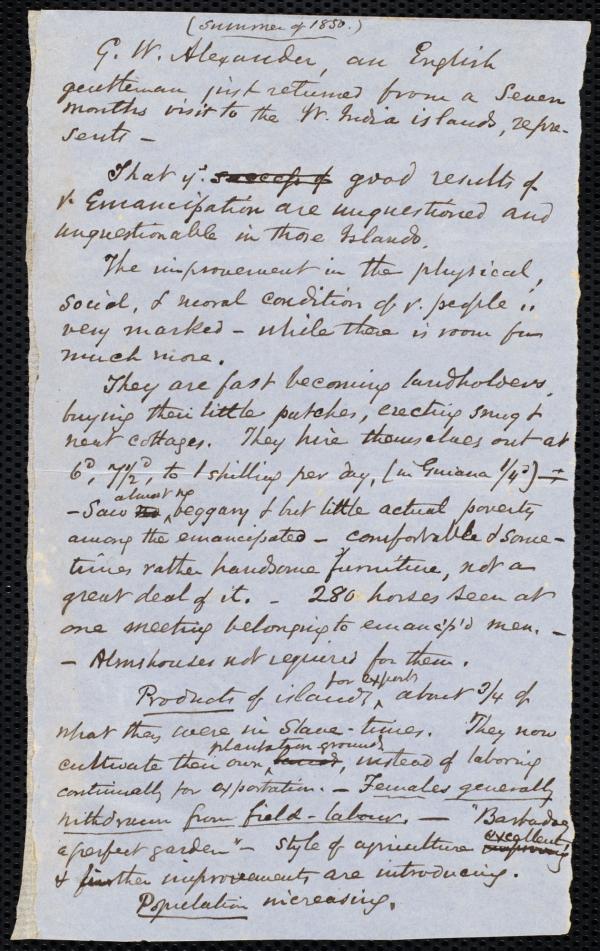 (Summer of 1850.)
G. W. Alexander, an English
gentleman just returned from a Seven
months visit to the W. India islands, repre-
sents –
That ye. success of good results of
ye Emancipation are unquestioned and
unquestionable in those Islands.
The improvement in the physical,
social, & moral condition of ye. people is
very marked – while there is room for
much more.
They are fast becoming landholders,
buying their little patches, erecting snug &
neat cottages. They hire themselves out at
6d, 7 1/2d, to 1 shilling per day, (in Guiana 1/4d) –
almost no
– Saw no beggary & but little actual poverty
among the emancipated – comfortable & some-
times rather handsome furniture, not a
great deal of it. – 280 horses seen at
one meeting belonging to emancip'd men. –
– Almshouses not required for them.
for export
Products of islands, about 3/4 of
what they were in Slave-times. They now
plantation grounds
cultivate their own land, instead of laboring
continually for exportation. – Females generally
withdrawn from field-labour. – "Barbadoes
a perfect garden" – style of agriculture improving
excellent
& further improvements are introducing.
Population increasing.